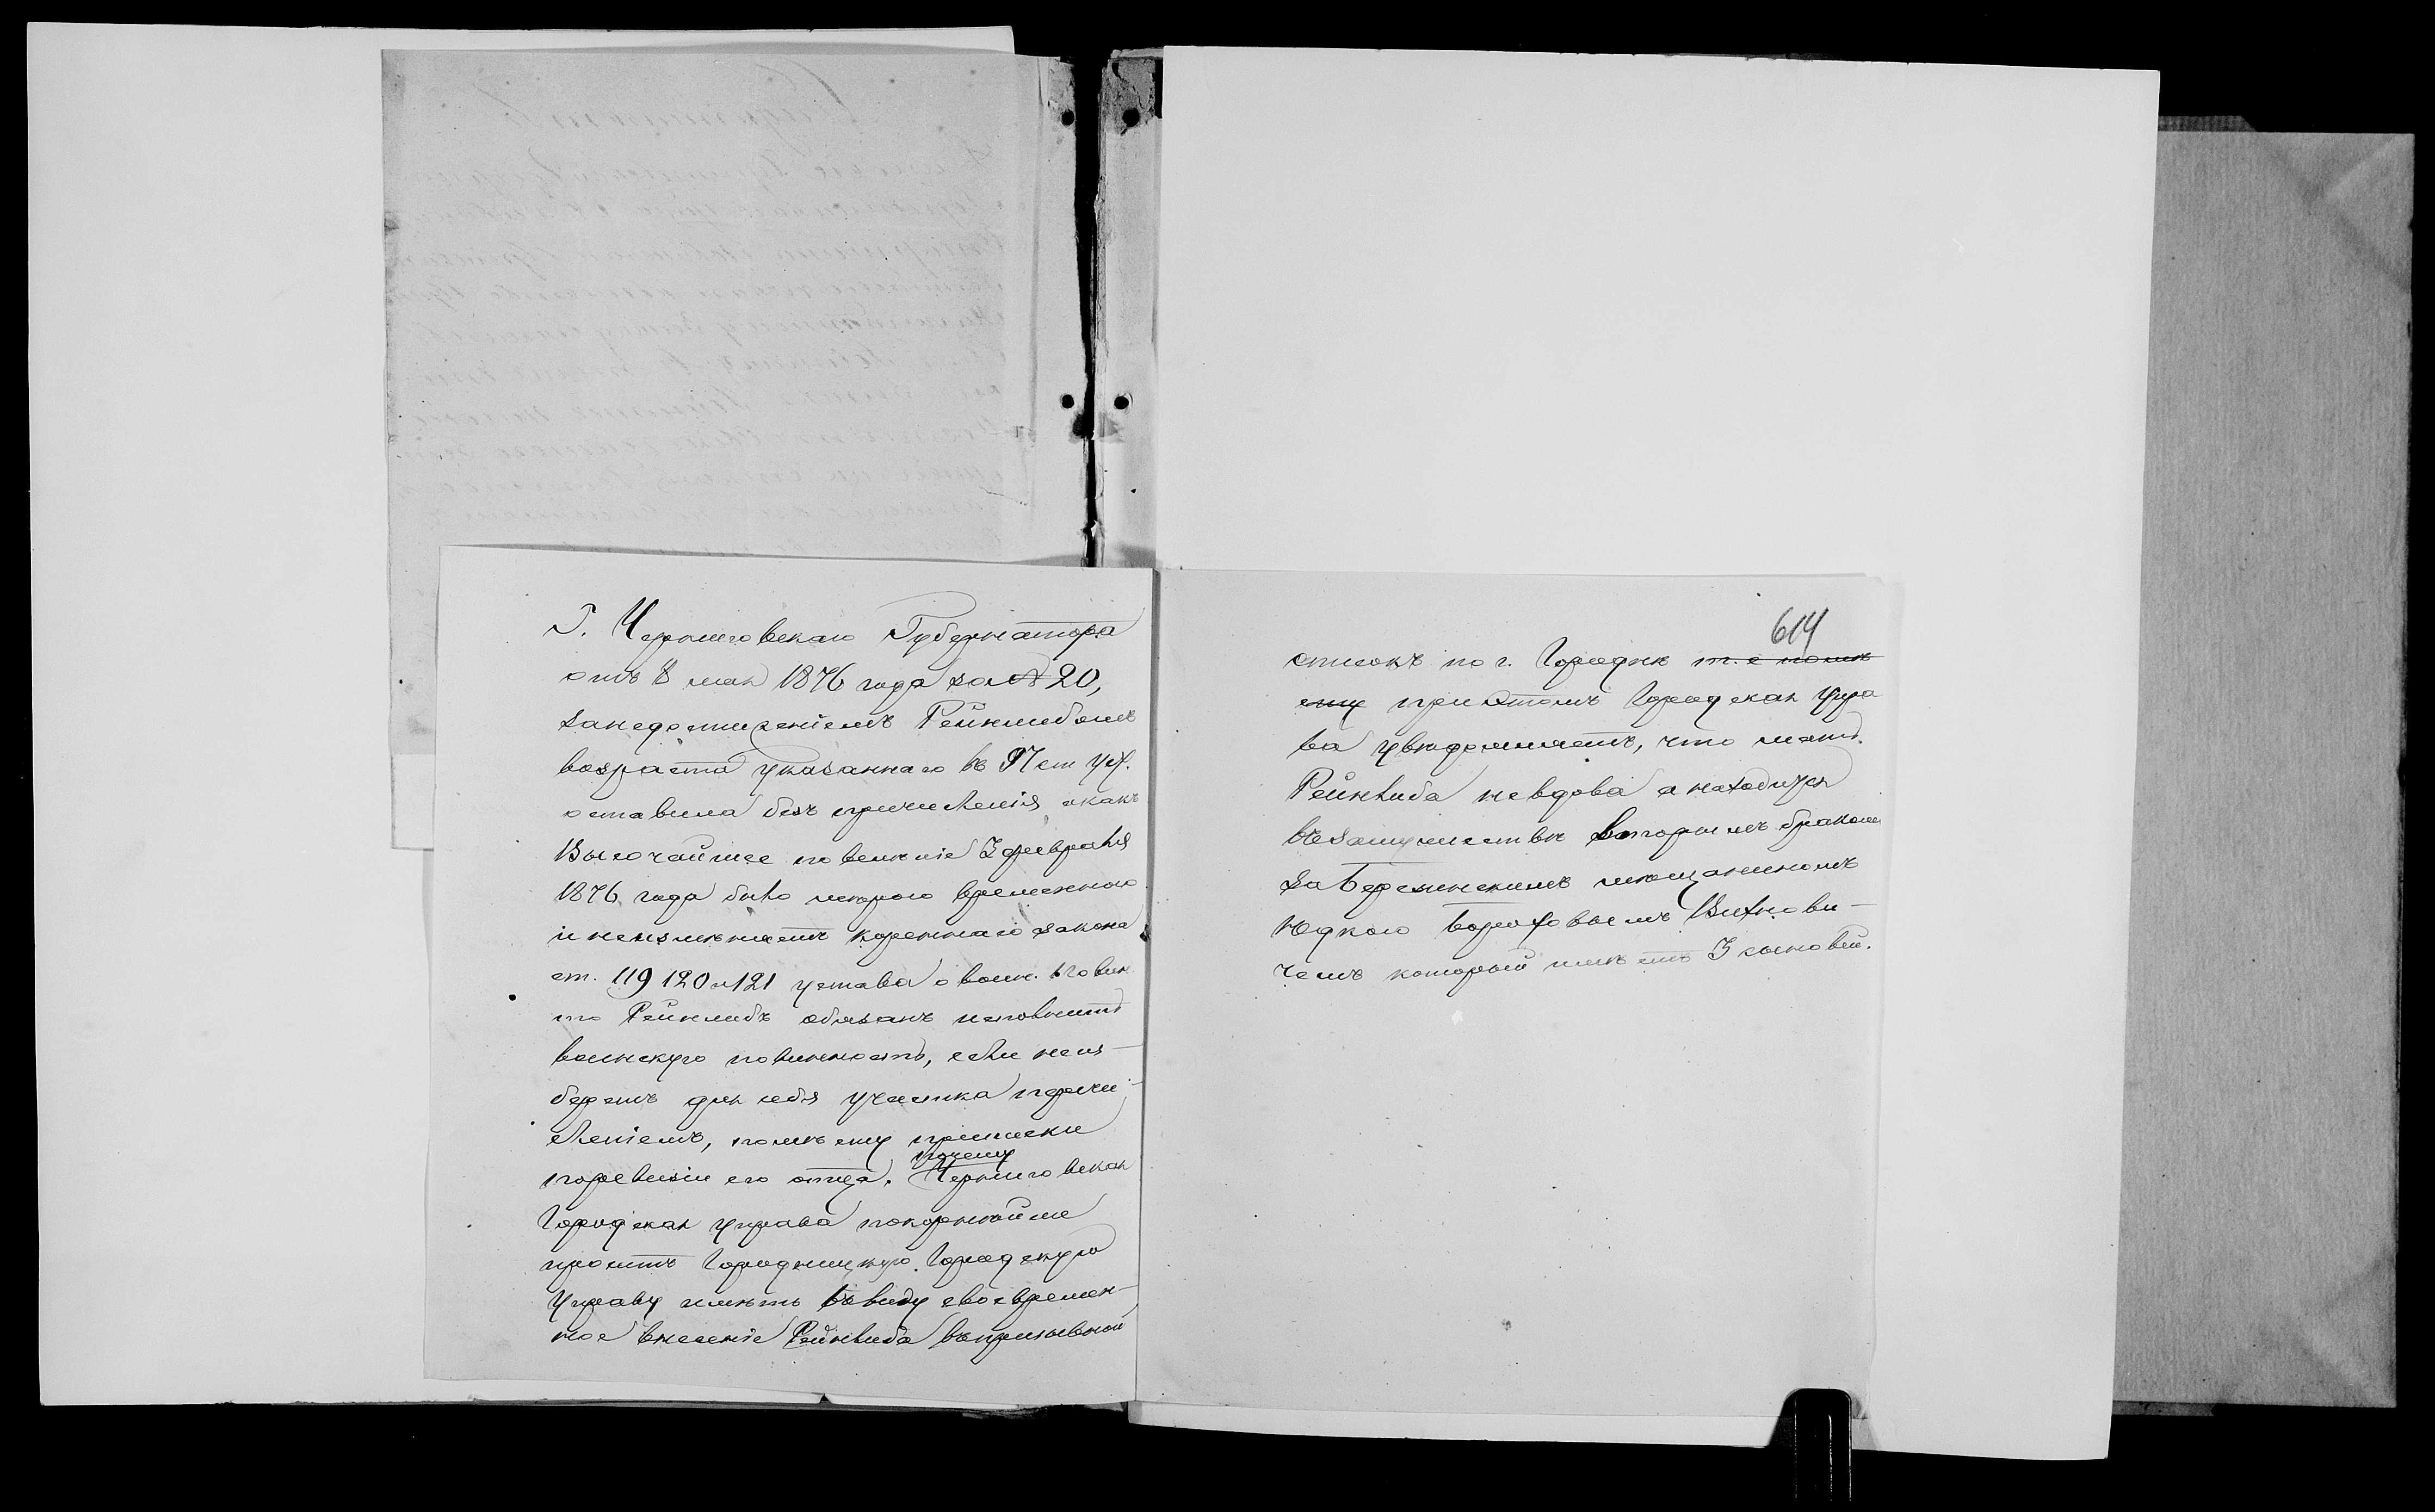 Г. Черниговскаго Губернатора
отъ 8 мая 1876 года за № 20,
занедостиженіемъ Рейнлибомъ
возраста указаннаго въ 97 ст уст.
оставила безъ причисленія а какъ
Высочайшее повелѣніе 3 февраля
1876 года было мерою временною
и неизмѣняетъ кореннаго закона
ст. 119 120 и 121 устава о воин. повин
то Рейнлибъ обязанъ исполнить
воинскую повинность, если неиз-
беретъ для себя участка перечи-
сленіемъ, помѣсту приписки
поревизіи его отца. Черниговская
почему
Городская управа покорнейше
проситъ Городницкую Городскую
Управу имѣть въ виду своевремен-
ное внесеніе Рейнлиба въ призывной
614
списокъ по г. Городнѣ т. е помѣ
сту приэтомъ Городская Упра
ва увѣдомляетъ, что мать
Рейнлиба невдова а находится
въ замужествѣ вторымъ бракомъ
за Березинскимъ мѣщаниномъ
Борохов
чемъ который имѣетъ 3 сыновей.